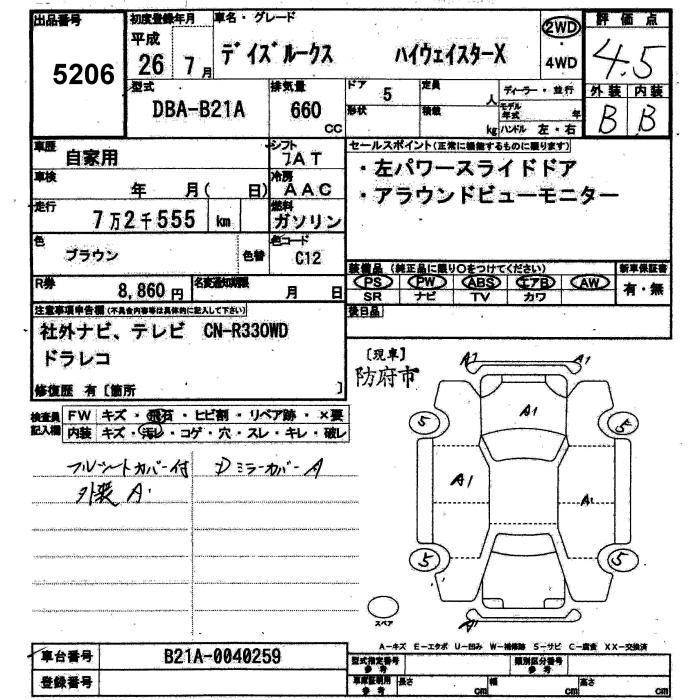 出品番号
5206
初度登録年月
平成
26 7月
車名・グレード
デイズルークス ハイウェイスターX
2WD
・
4WD
評価点
4.5
外装 内装
B B
型式
DBA-B21A
排気量
660
cc
ドア 5
形状
定員 人
積載 kg
ディーラー・並行
モデル年式 年
ハンドル 左・右
車歴
自家用
シフト
フAT
車検
年 月( 日)
冷房
AAC
走行
7万2千555 km
燃料
ガソリン
色
ブラウン
色替
色コード
C12
R券
8,860円
名変通知期限
月 日
セールスポイント(正常に機能するものに限ります)
・左パワースライドドア
・アラウンドビューモニター
装備品(純正品に限り〇をつけてください)
PS PW ABS エアB AW
SR ナビ TV カワ
新車保証書
有・無
後日品
注意事項申告欄(不具合内容等は具体的に記入して下さい)
社外ナビ、テレビ CN-R330WD
ドラレコ
修復歴 有〔箇所 〕
検査員
記入欄
FW キズ・飛石・ヒビ割・リペア跡・×要
内装 キズ・汚レ・コゲ・穴・スレ・キレ・破レ
フルシートカバー付 Dミラーカバー A
外装 A'
〔現車〕
防府市
A2 A1
5 A1 5
A1 A1
5 5
スペア
A'
A-キズ E-エクボ U-凹み W-補修跡 S-サビ C-腐食 XX-交換済
車台番号
B21A-0040259
登録番号
型式指定番号
参考
類別区分番号
参考
車庫証明用
参考
長さ cm 幅 cm 高さ cm